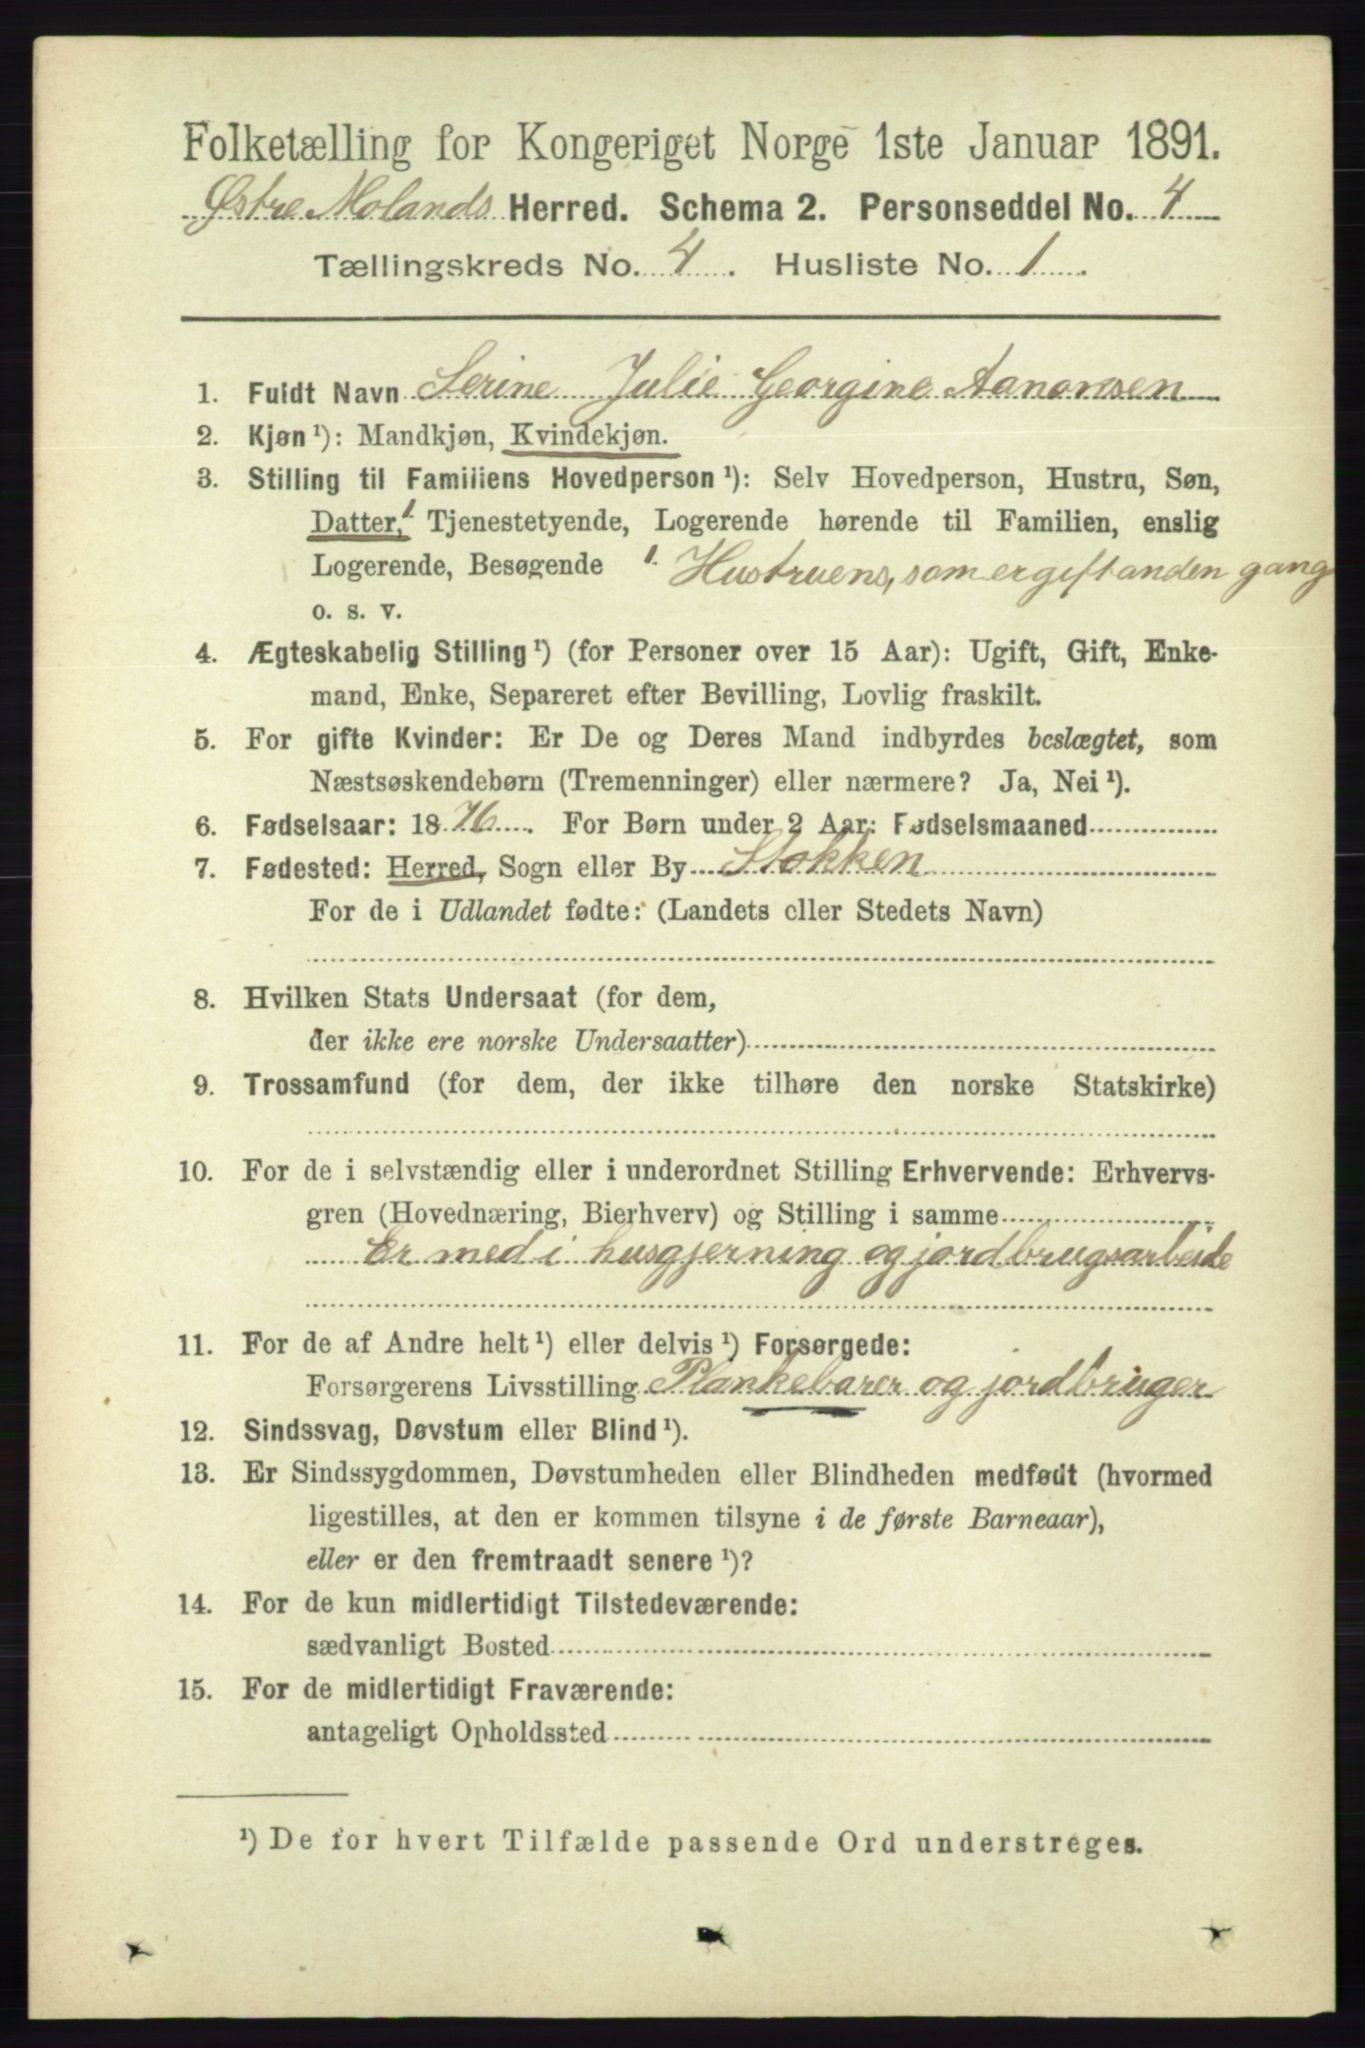 Folketælling for Kongeriget Norge 1ste Januar 1891.
Østre Molands Herred. Schema 2. Personseddel No. 4
Tællingskreds No. 4. Husliste No. 1.
1. Fuldt Navn Serine Julie Georgine Aanonsen
2. Kjøn ¹): Mandkjøn, Kvindekjøn.
3. Stilling til Familiens Hovedperson ¹): Selv Hovedperson, Hustru, Søn,
Datter, ¹ Tjenestetyende, Logerende hørende til Familien, enslig
Logerende, Besøgende ¹· Hustruens, som er gift anden gang
o. s. v.
4. Ægteskabelig Stilling ¹) (for Personer over 15 Aar): Ugift, Gift, Enke-
mand, Enke, Separeret efter Bevilling, Lovlig fraskilt.
5. For gifte Kvinder: Er De og Deres Mand indbyrdes beslægtet, som
Næstsøskendebørn (Tremenninger) eller nærmere? Ja, Nei ¹).
6. Fødselsaar: 1876. For Børn under 2 Aar: Fødselsmaaned
7. Fødested: Herred, Sogn eller By Stokken
For de i Udlandet fødte: (Landets eller Stedets Navn)
8. Hvilken Stats Undersaat (for dem,
der ikke ere norske Undersaatter)
9. Trossamfund (for dem, der ikke tilhøre den norske Statskirke)
10. For de i selvstændig eller i underordnet Stilling Erhvervende: Erhvervs-
gren (Hovednæring, Bierhverv) og Stilling i samme
Er med i husgjerning og jordbrugsarbeide
11. For de af Andre helt ¹) eller delvis ¹) Forsørgede:
Forsørgerens Livsstilling Plankebærer og jordbruger
12. Sindssvag, Døvstum eller Blind ¹).
13. Er Sindssygdommen, Døvstumheden eller Blindheden medfødt (hvormed
ligestilles, at den er kommen tilsyne i de første Barneaar),
eller er den fremtraadt senere ¹)?
14. For de kun midlertidigt Tilstedeværende:
sædvanligt Bosted
15. For de midlertidigt Fraværende:
antageligt Opholdssted
¹) De for hvert Tilfælde passende Ord understreges.